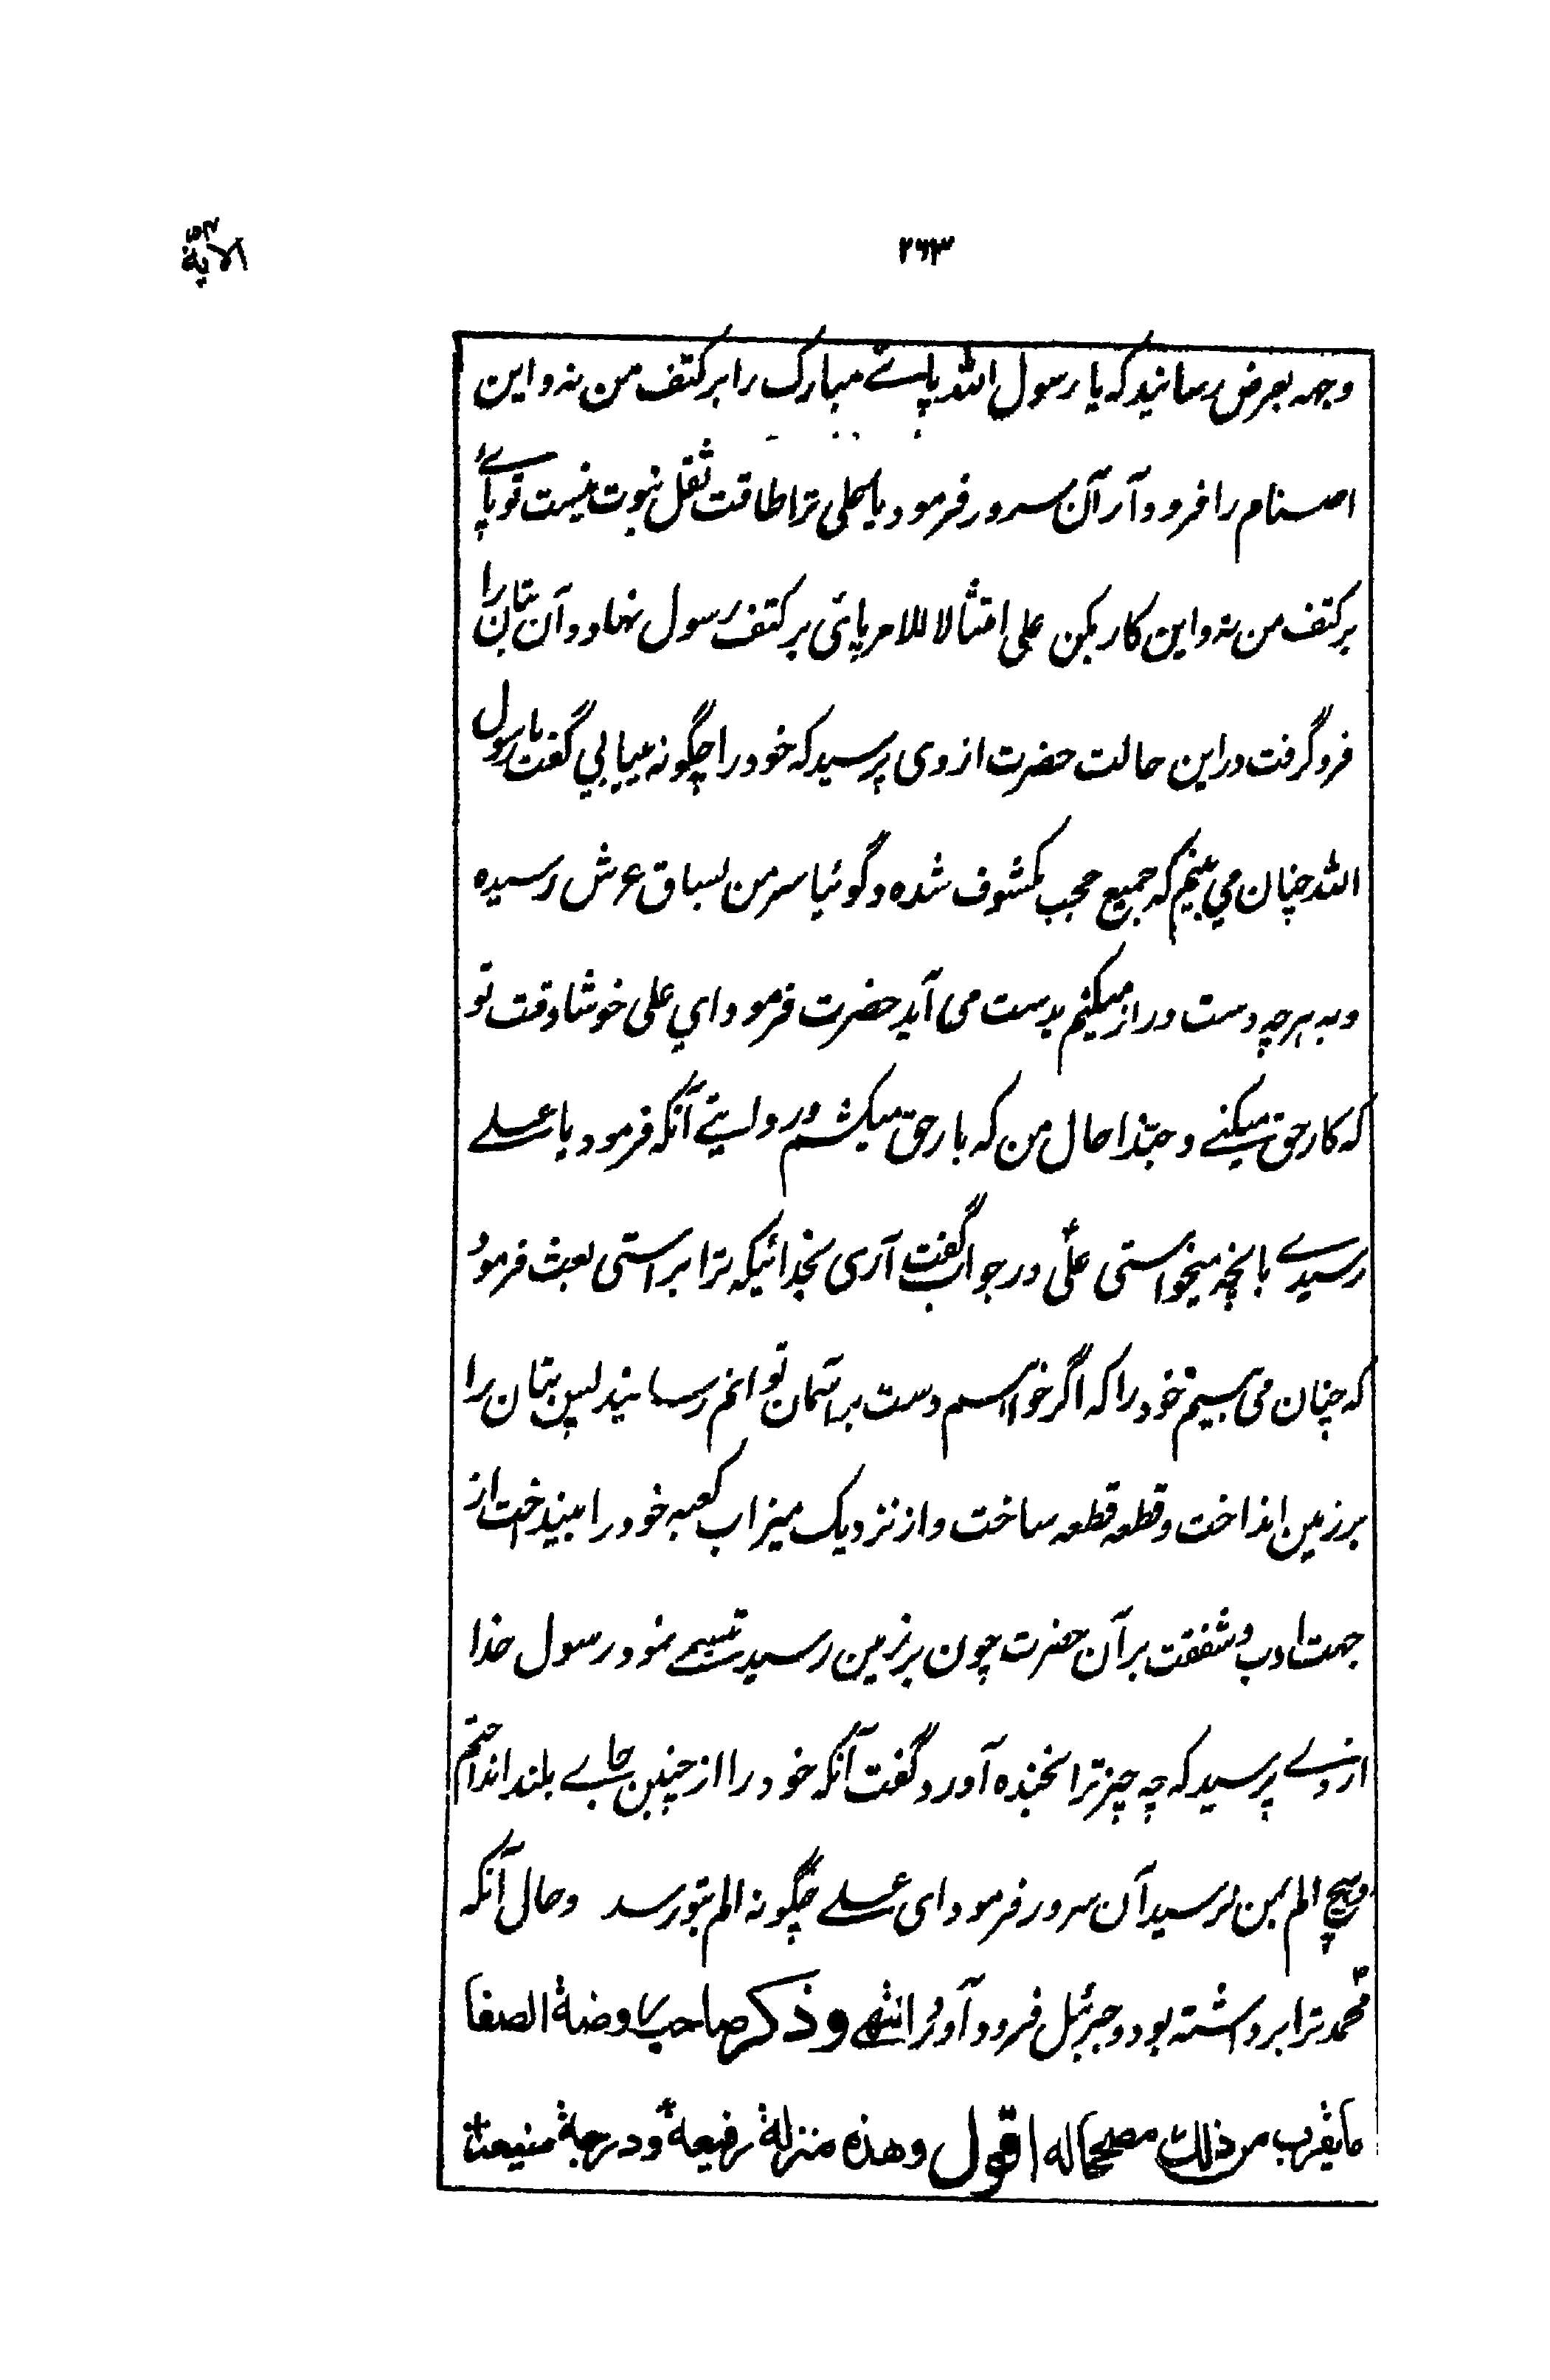 ۲۶۳
الآیة
وجهه بعرض رسانید که یا رسول الله پائے مبارک را بر کتف من نه و این
اصنام را فرود آر آن سرور فرمود یا علی ترا طاقت ثقل نبوت نیست تو پائے
بر کتف من نه و این کار بکن علی امتثالا للامر پائی بر کتف رسول نهاد و آن بتان را
فرو گرفت در این حالت حضرت از وی پرسید که خود را چگونه مییابي گفت یا رسول
الله چنان مي بینم که جمیع حجب مکشوف شده و گوئیا سر من بساق عرش رسیده
و به هر چه دست دراز میکنم بدست می آید حضرت فرمود اي علی خوشا وقت تو
که کار حق میکنے و حبّذا حال من که بار حق میکشم و در روایتے آنکه فرمود یا علے
رسیدے بانچه میخواستی علی در جواب گفت آری بخدائیکه ترا براستی بعث فرمود
که چنان می بینم خود را که اگر خواهم دست بر آسمان توانم رسانید پس بتان را
بر زمین انداخت و قطعه قطعه ساخت و از نزدیک میزاب کعبه خود را بینداخت از
جهت ادب و شفقت بر آن حضرت چون بر زمین رسید تبسمے نمود رسول خدا
از وے پرسید که چه چیز ترا بخنده آورد گفت آنکه خود را از چنین جاے بلند انداختم
و هیچ الم بمن نرسید آن سرور فرمود ای علے چگونه الم بتو رسد و حال آنکه
محمد ترا برداشته بود و جبرئیل فرود آورد انتهی و ذکر صاحب روضة الصفا
ما یقرب من ذلك مصححا له اقول و هذه منزلة رفیعة و درجة منیعة